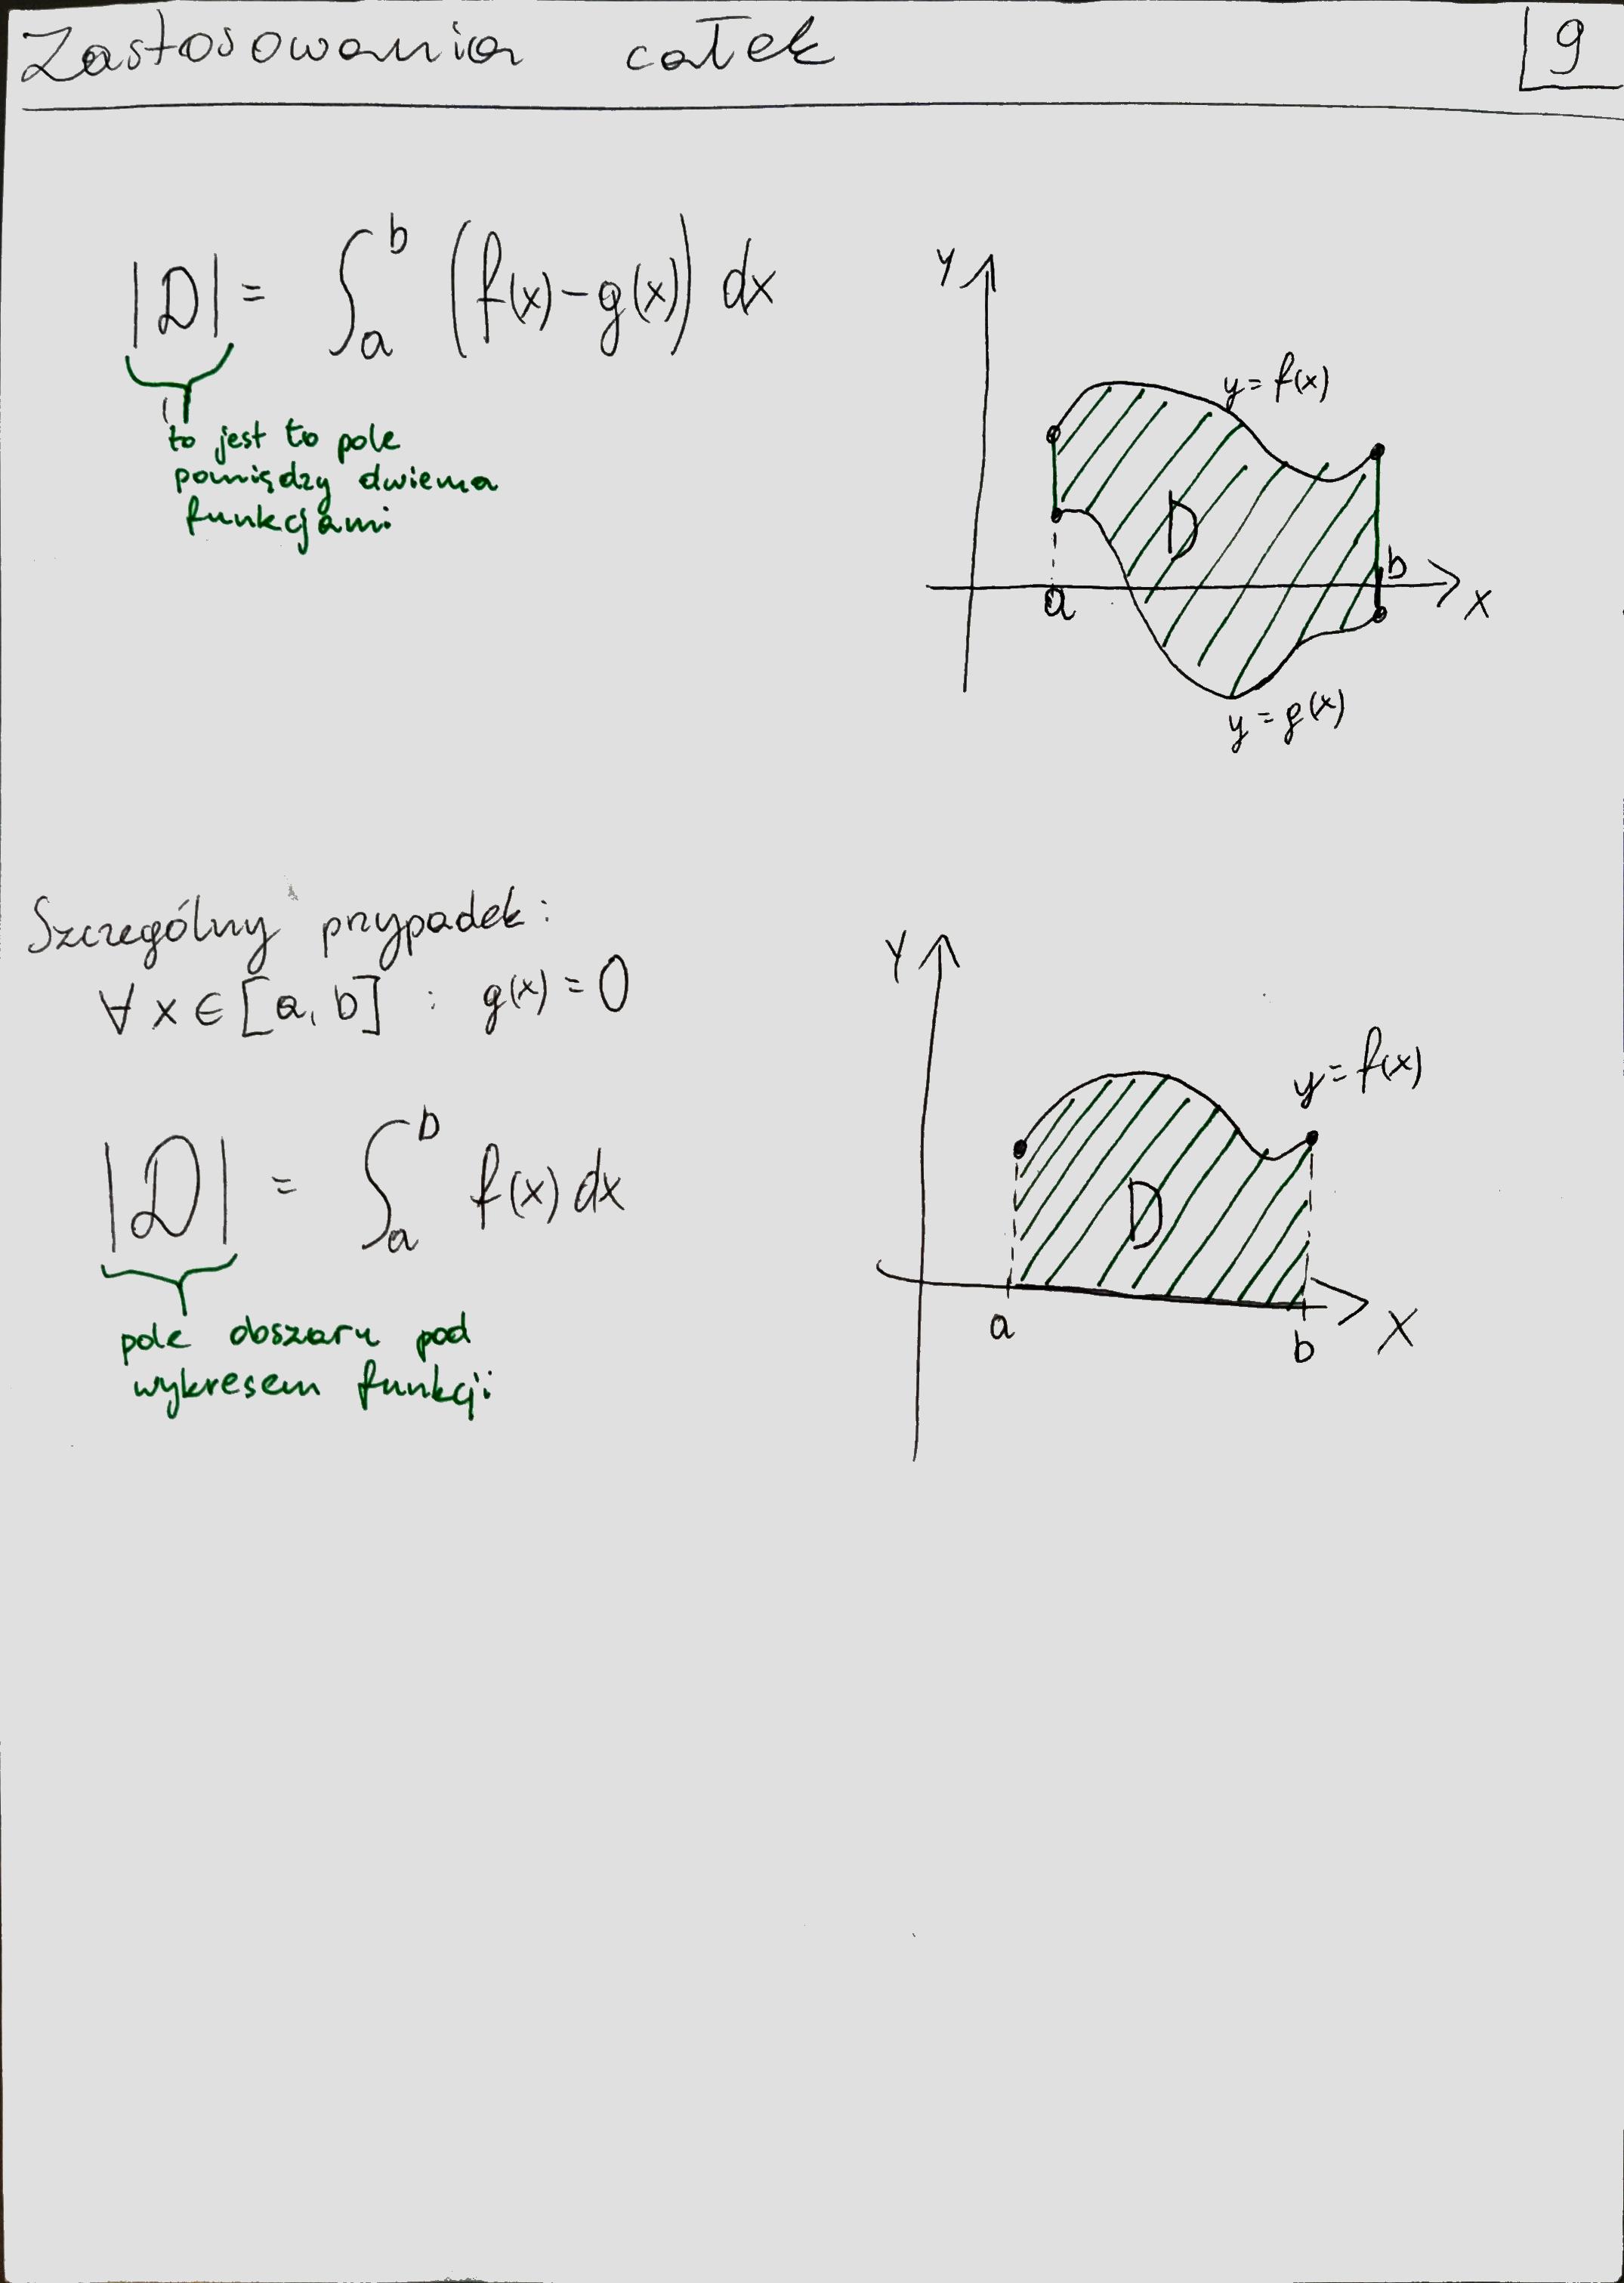 Zastosowania całek
9
|D| = ∫_a^b (f(x)-g(x)) dx
to jest to pole
pomiędzy dwiema
funkcjami
Y
y = f(x)
D
a
b
X
y = g(x)
Szczególny przypadek:
∀ x ∈ [a, b] : g(x) = 0
|D| = ∫_a^b f(x) dx
pole obszaru pod
wykresem funkcji
Y
y = f(x)
D
a
b
X